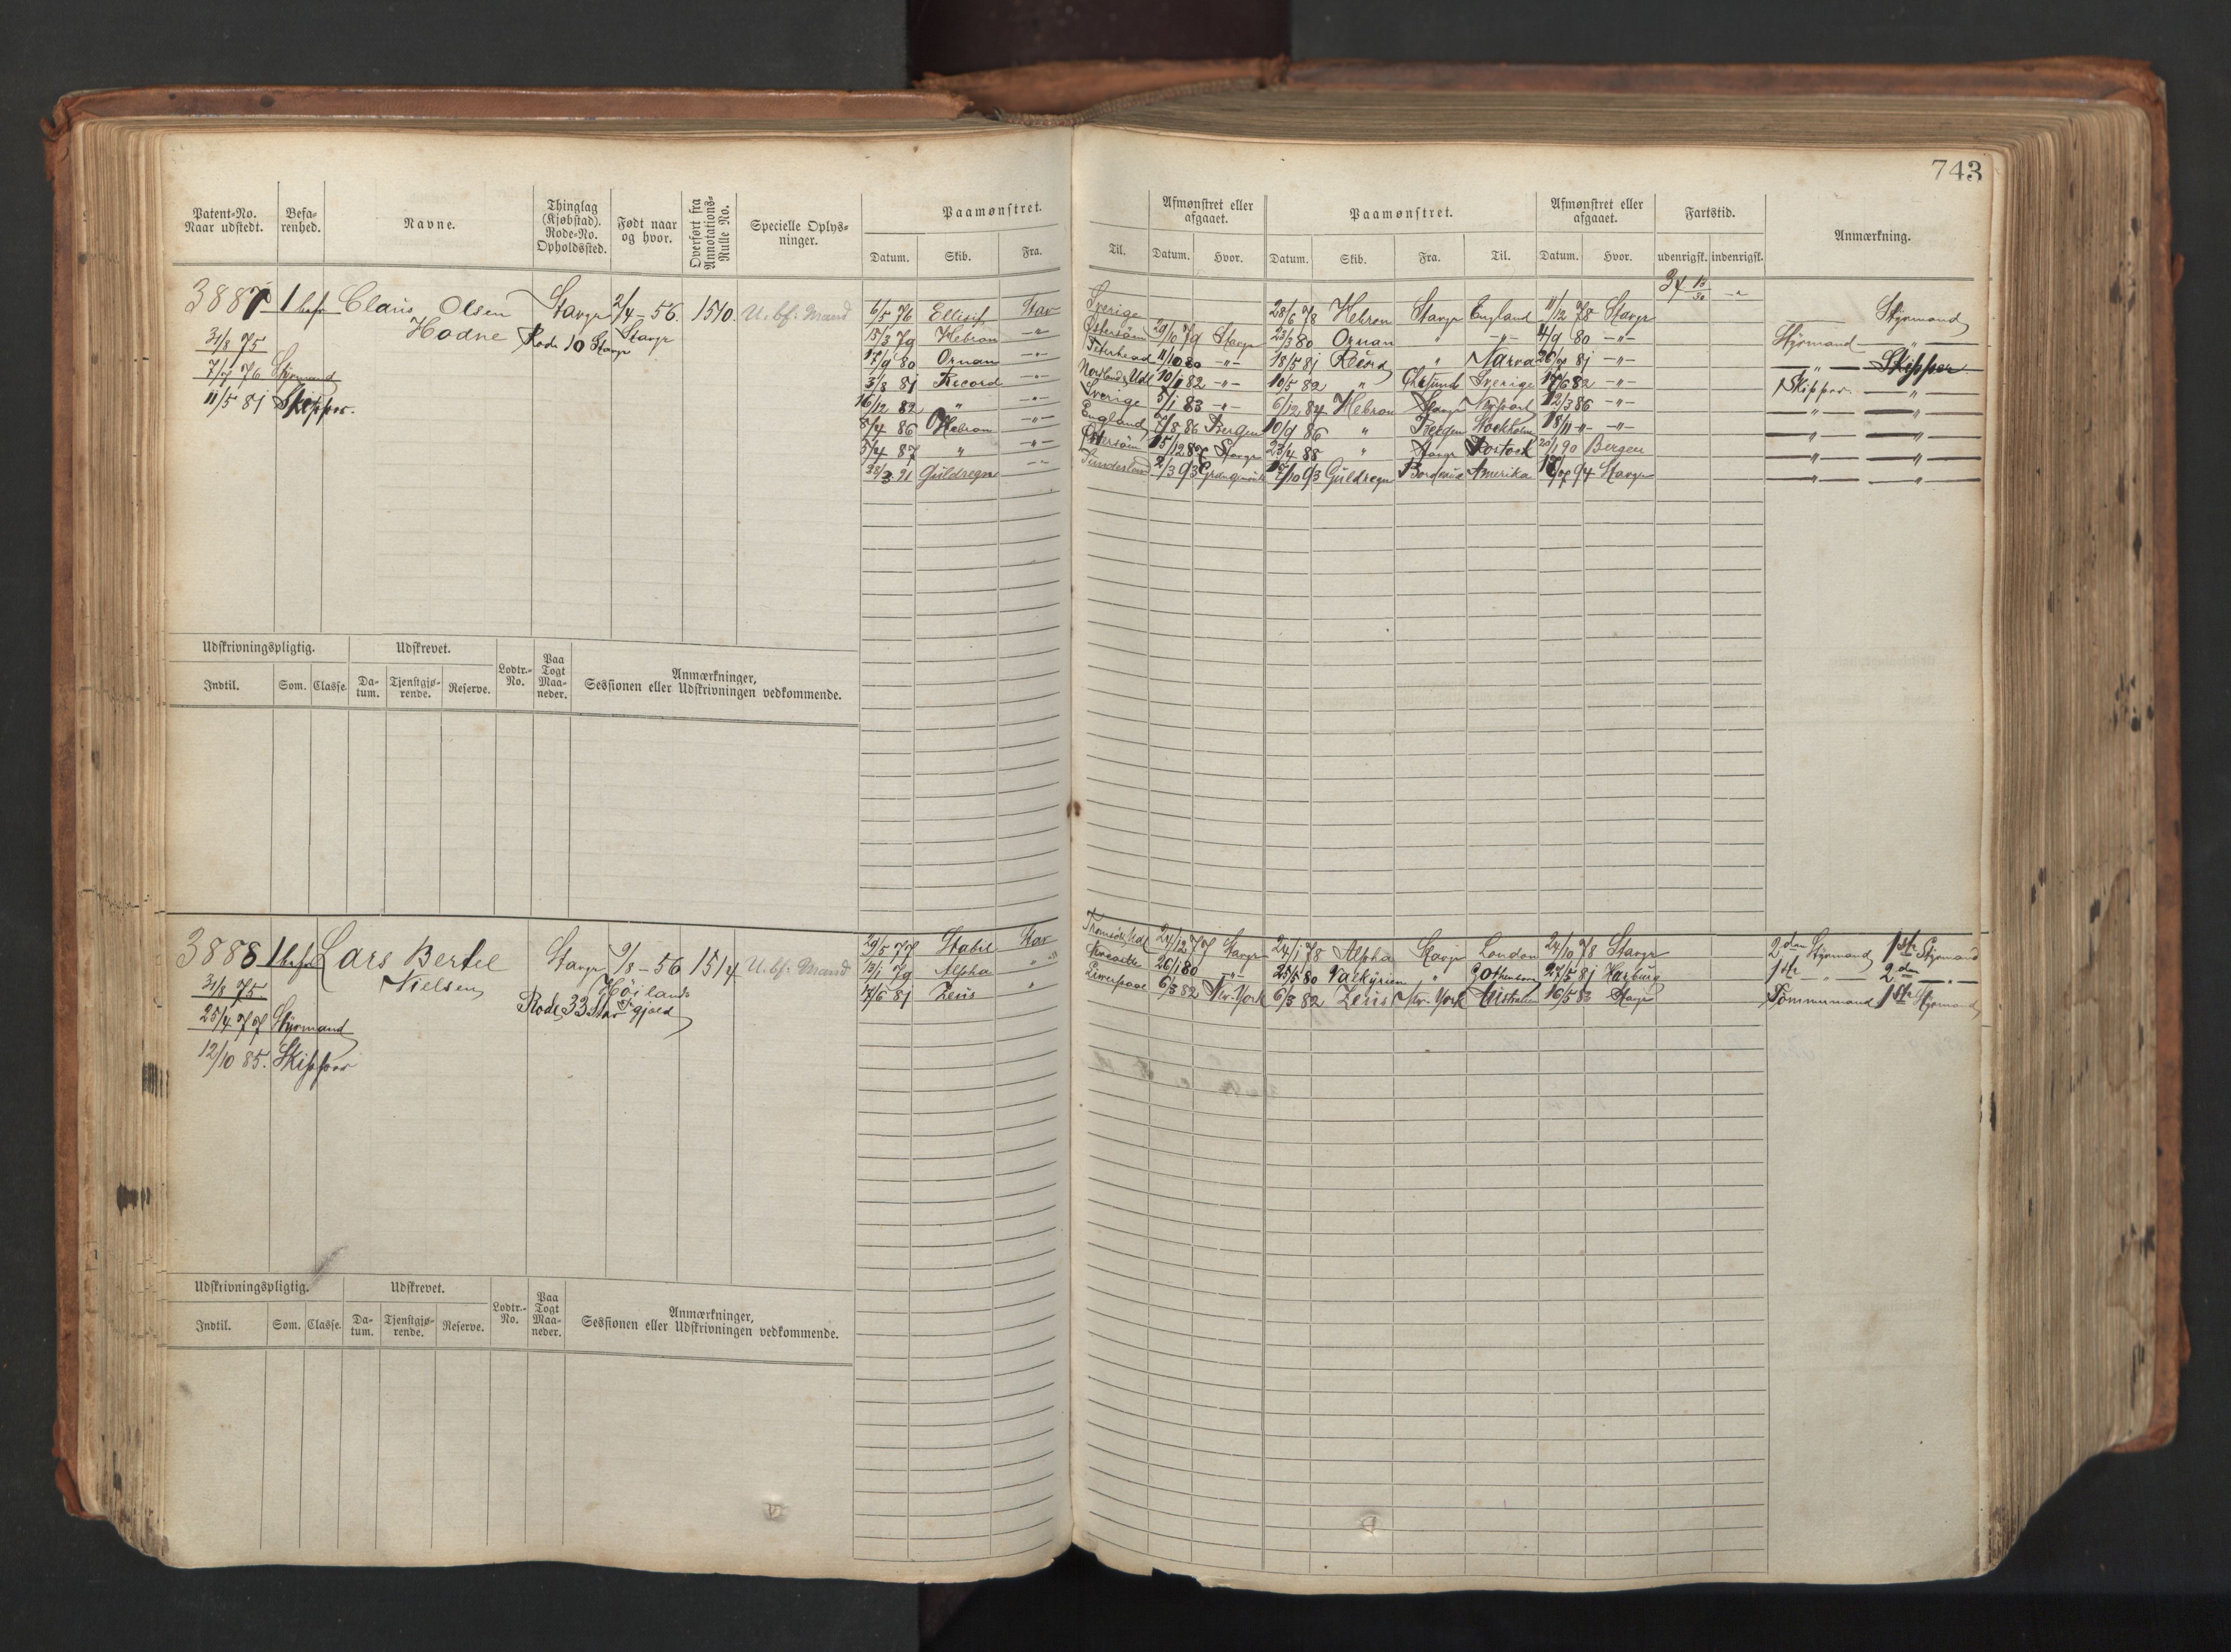 743
Patent-No. Naar udstedt. Befa-renhed. Navne. Thinglag (Kjøbstad). Rode-No. Opholdssted. Født naar og hvor. Overført fra Annotations-Rulle No. Specielle Oplys-ninger. Paamønstret. Afmønstret eller afgaaet. Paamønstret. Afmønstret eller afgaaet. Fartstid. Anmærkning.
Datum. Skib. Fra. Til. Datum. Hvor. Datum. Skib. Fra. Til. Datum. Hvor. udenrigsk. indenrigsk.
3887 1 bef Claus Olsen Stavgr 2/4-56. 1510. U. bf. Mand 6/5 76 Ellisif Stav Sverige 28/6 78 Hebron Stavgr England 11/12 78 Stavgr Styrmand
31/8 75 Hodne Rode 10 Stavgr Stavgr 15/3 79 Hebron -"- Østersøen 29/10 79 Stavgr 23/3 80 Ornan " -"- 4/9 80 -"- Styrmand -"-
7/7 76 Styrmand 17/9 80 Ornan -"- Peterhead 11/10 80 -"- 18/5 81 Record " Narva 81 -"- -"- Skipper
11/5 81 Skipper. 3/8 81 Record -"- 10/1 82 -"- 10/5 82 " Chrsund Sverige 17/6 82 -"- Skipper. -"-
16/12 82 " -"- Sverige 5/1 83 -"- 6/12 84 Hebron Stavgr 12/3 86 -"- -"- -"-
8/4 86 Hebron -"- England 7/8 86 Bergen 10/9 86 " Bergen Stockholm 18/11 -"- -"- -"- -"-
5/4 87 " -"- Østersøen 15/12 87 Stavgr 23/4 88 " Stavgr Rostock 20/1 90 Bergen -"- -"-
28/3 91 Guldregn -"- Sunderland 2/3 93 /10 93 Guldregn Bordeaux Amerika 94 Stavgr -"- -"-
Udskrivningspligtig. Udskrevet. Lodtr.-No. Paa Togt Maa-neder. Anmærkninger, Sessionen eller Udskrivningen vedkommende.
Indtil. Som. Classe. Da-tum. Tjenstgjø-rende. Reserve.
3888 1 bef Lars Bertel Stavgr 9/8-56 1514 U. bf. Mand 29/5 77 Stabil Stav 24/12 77 Stavgr 24/1 78 Alpha Stavgr London 24/10 78 Stavgr 2den Styrmand 1ste Styrmand
31/8 75. Nielsen Høiland 13/1 79 Alpha " 26/1 80 -"- 25/5 80 Valkyrien " Gothenborg 27/5 81 Harburg 1ste -"- 2den -"-
25/4 77 Styrmand Rode 33 Stav Prgjæld 17/6 81 Zeus " Liverpool 6/3 82 Nw-York 6/3 82 Zeus Nw-York Australien 16/5 83 Stavgr Tømmermand 1ste Styrmand
12/10 85. Skipper
Udskrivningspligtig. Udskrevet. Lodtr.-No. Paa Togt Maa-neder. Anmærkninger, Sessionen eller Udskrivningen vedkommende.
Indtil. Som. Classe. Da-tum. Tjenstgjø-rende. Reserve.